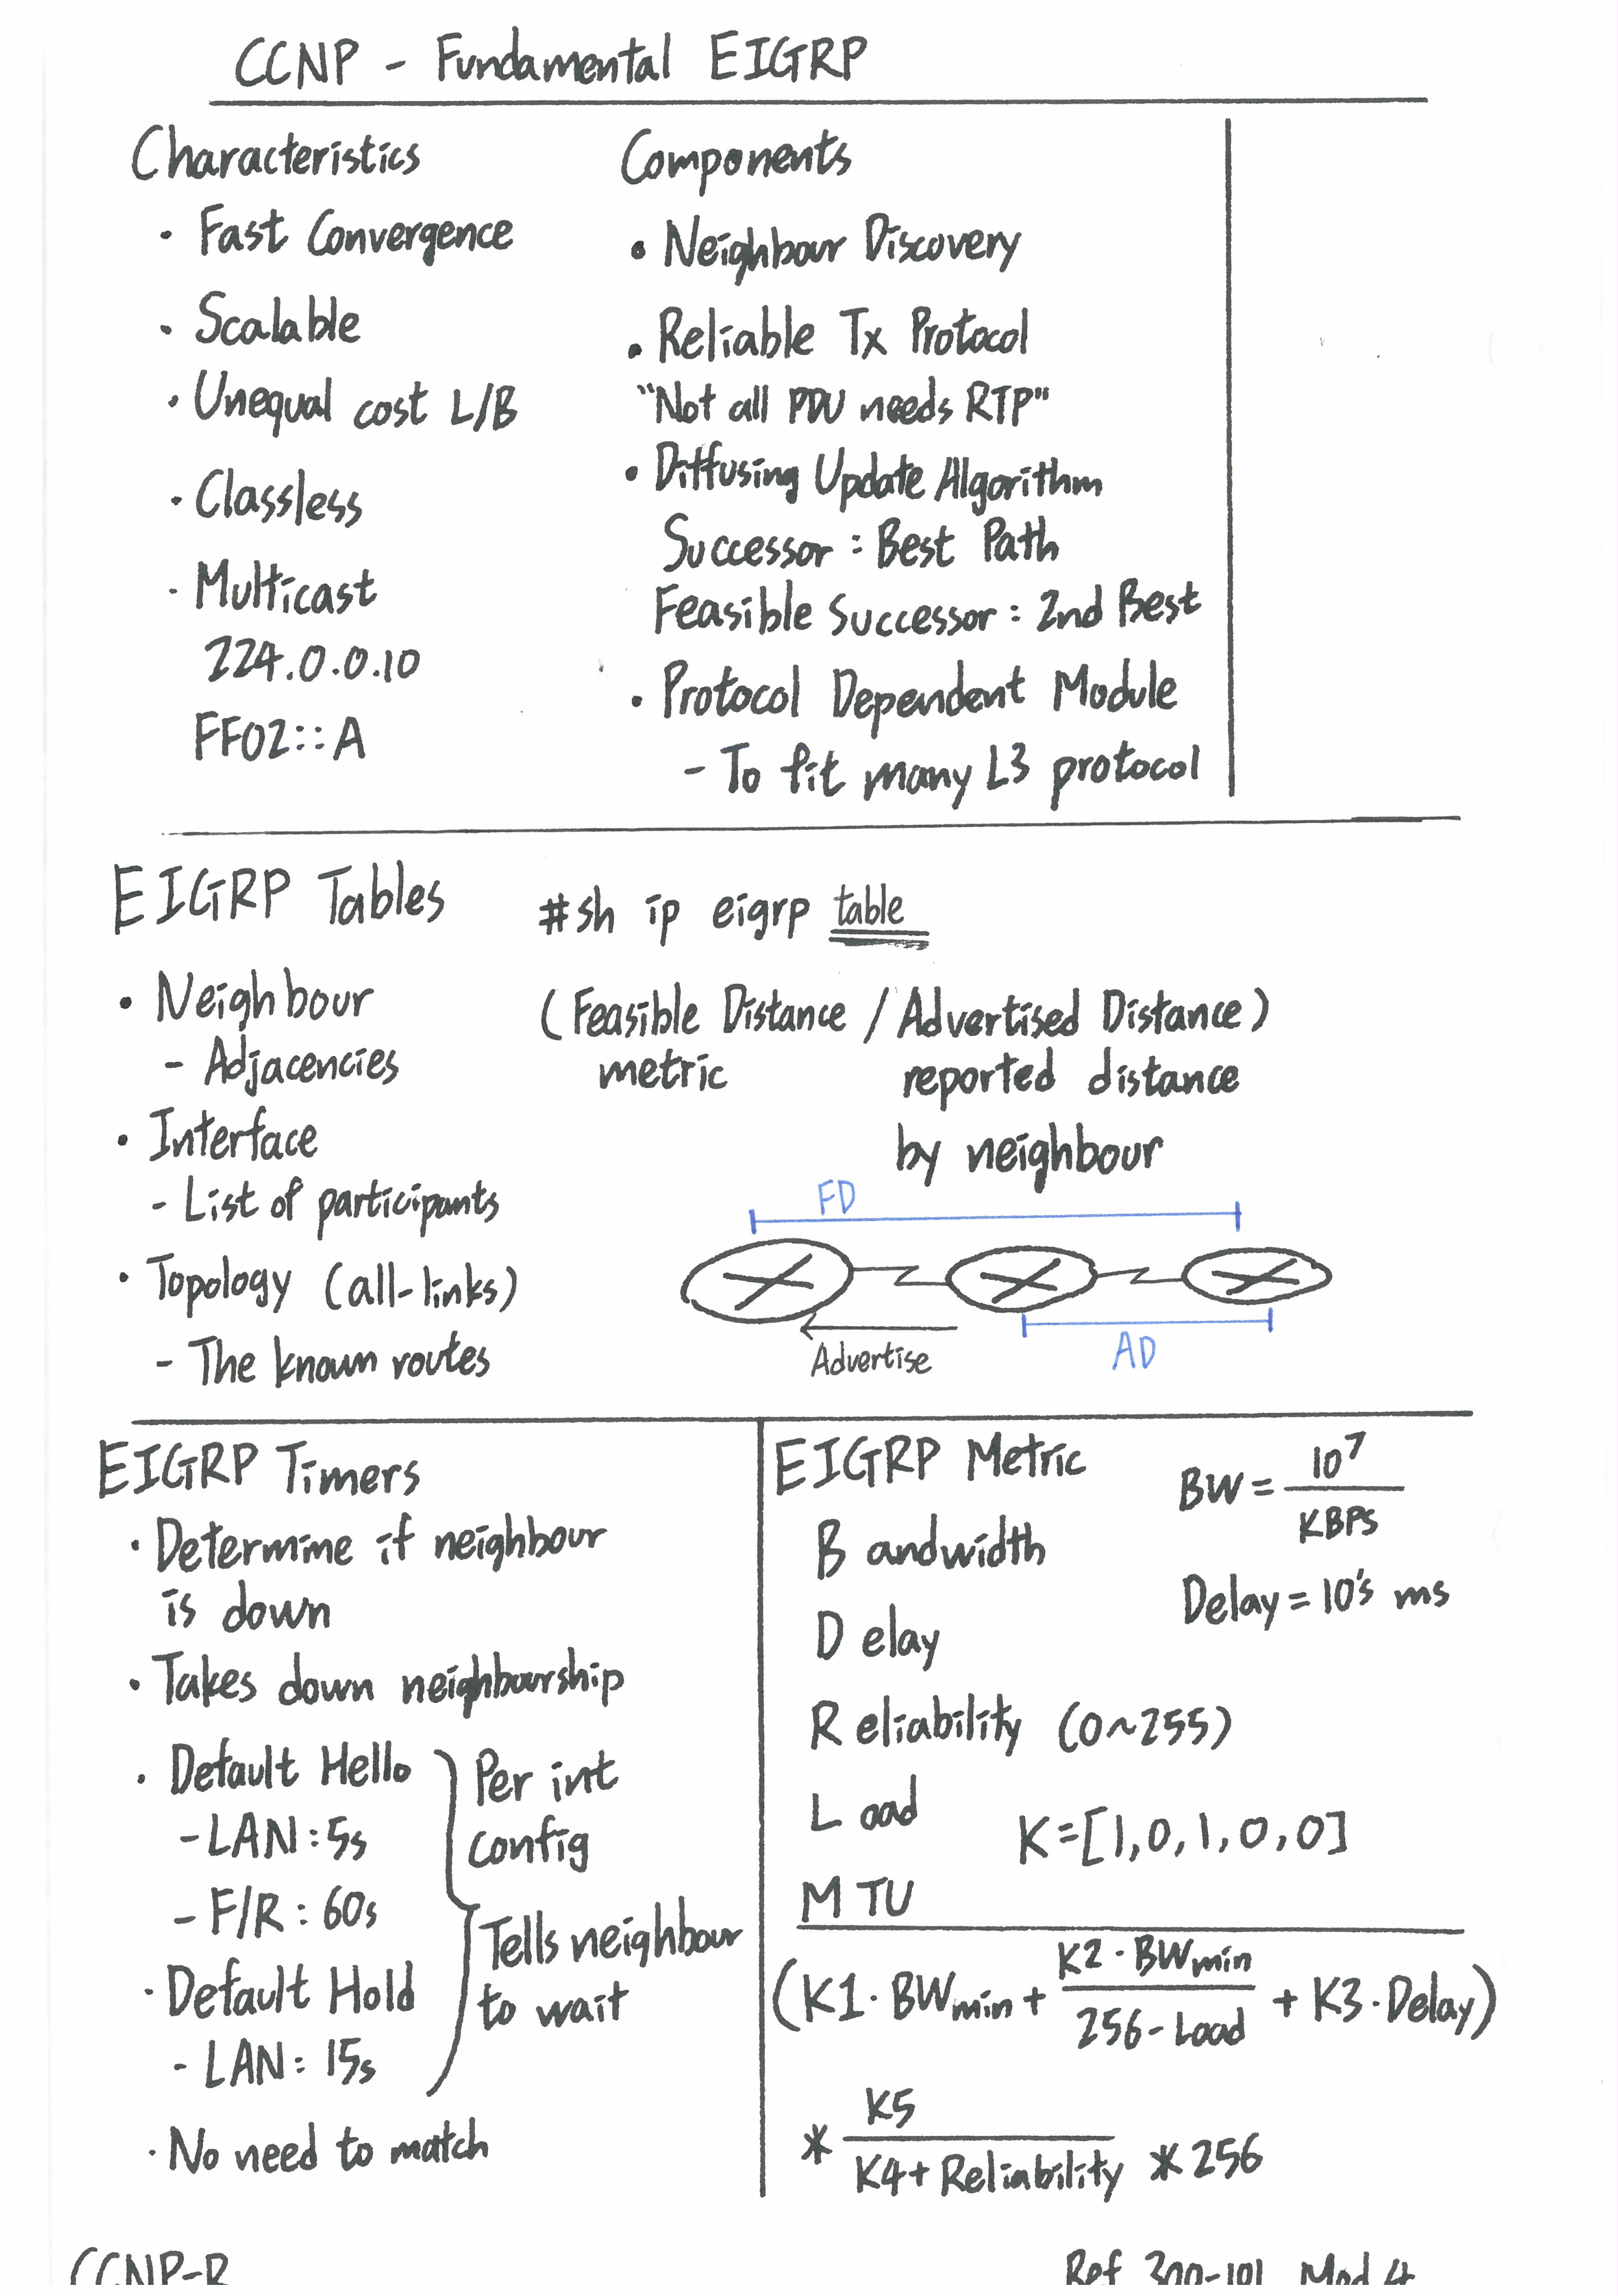 CCNP - Fundamental EIGRP
Characteristics
· Fast Convergence
· Scalable
· Unequal cost L/B
· Classless
· Multicast
224.0.0.10
FF02::A
Components
• Neighbour Discovery
• Reliable Tx Protocol
"Not all PDU needs RTP"
• Diffusing Update Algorithm
Successor : Best Path
Feasible Successor : 2nd Best
• Protocol Dependent Module
- To fit many L3 protocol
EIGRP Tables
#sh ip eigrp table
• Neighbour
- Adjacencies
• Interface
- List of participants
• Topology (all-links)
- The known routes
(Feasible Distance / Advertised Distance)
metric reported distance
by neighbour
FD
Advertise
AD
EIGRP Timers
· Determine if neighbour
is down
· Takes down neighbourship
· Default Hello
- LAN : 5s
- F/R : 60s
· Default Hold
- LAN : 15s
· No need to match
Per int
config
Tells neighbour
to wait
EIGRP Metric
Bandwidth
Delay
Reliability (0~255)
Load
MTU
BW = 10^7 / KBPS
Delay = 10's ms
K=[1,0,1,0,0]
(K1·BWmin + K2·BWmin / 256-Load + K3·Delay)
* K5 / K4+Reliability * 256
CCNP-R
Ref 300-101 Mod 4